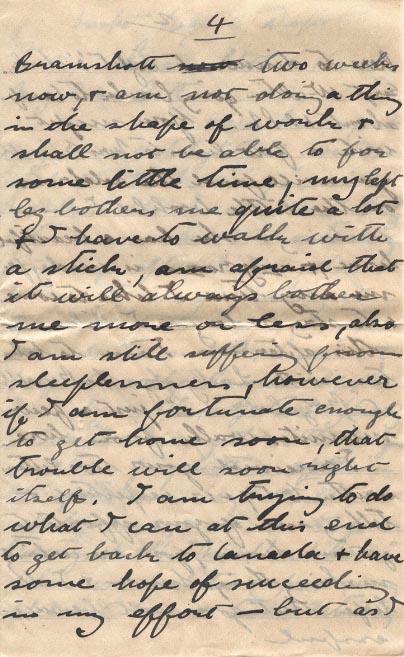 4
Bramshott now two weeks
now, & am not doing a thing
in the shape of work &
shall not be able to for
some little time, my left
leg bothers me quite a lot
& I have to walk with
a stick, am afraid that
it will always bother
me more or less, also
I am still suffering from
sleeplessness, however
if I am fortunate enough
to get home soon, that
trouble will soon right
itself. I am trying to do
what I can at this end
to get back to Canada & have
some hope of succeeding
in my effort - but as I